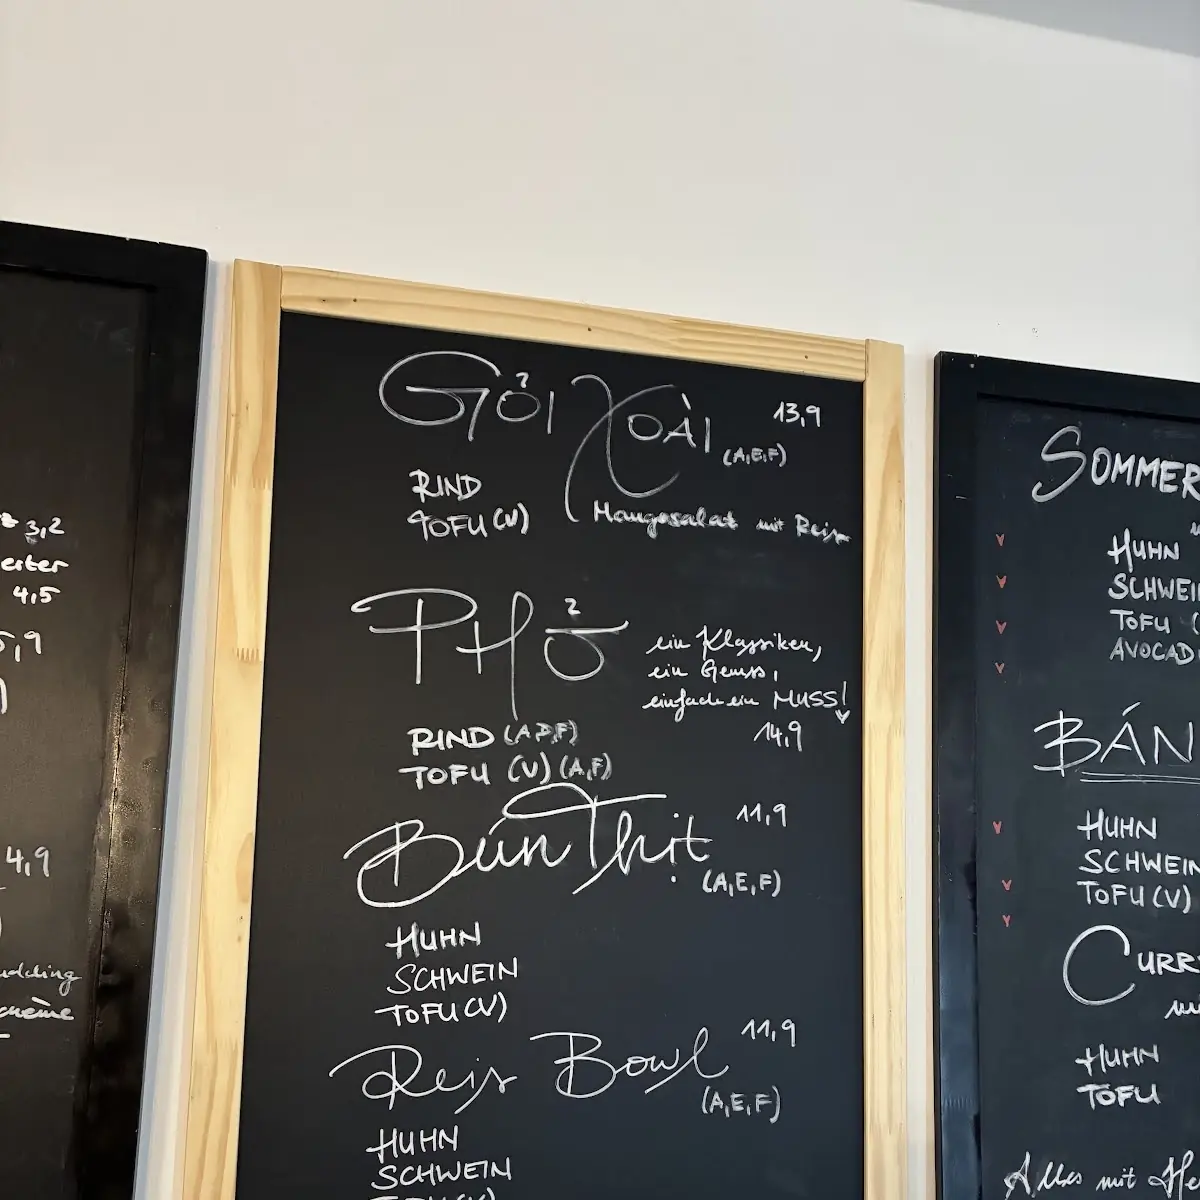 3,2
4,5
5,9
4,9
GỎI XOÀI 13,9
(A,E,F)
RIND
TOFU (V) Mangosalat mit Reis
PHỞ
ein Klassiker,
ein Genuss,
einfach ein MUSS!
RIND (A,D,F) 14,9
TOFU (V) (A,F)
Bún Thịt 11,9
(A,E,F)
HUHN
SCHWEIN
TOFU (V)
Reis Bowl 11,9
(A,E,F)
HUHN
SCHWEIN
TOFU (V)
SOMMER
HUHN
SCHWEIN
TOFU (
AVOCAD
BÁN
HUHN
SCHWEIN
TOFU (V)
CURR
HUHN
TOFU
Alles mit He